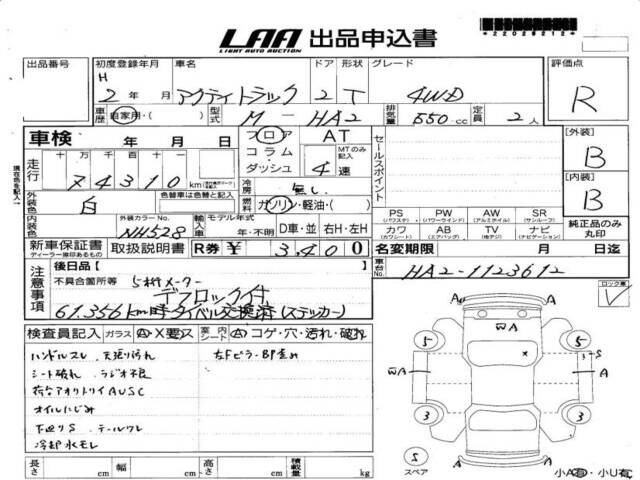 LAA 出品申込書
LIGHT AUTO AUCTION
*22028212*
出品番号 初度登録年月 車名 ドア 形状 グレード 評価点
H 2年 月 アクティトラック 2 T 4WD R
車歴 自家用・( ) 型式 M-HA2 排気量 550cc 定員 2人
車検 年 月 日 フロア AT
コラム・ダッシュ MTのみ記入 4速
セールスポイント
[外装] B
[内装] B
現在色を記入
走行 十 万 千 百 十
74310 km
冷房 無し
外装色 白 色替車は色替と記入 燃料 ガソリン・軽油・( )
内装色 外装カラーNo. NH528 輸入車 モデル年式 年・不明 D車・並 右H・左H
PS (パワステ) PW (パワーウインド) AW (アルミホイル) SR (サンルーフ)
カワ (カワシート) AB (エアバッグ) TV (地デジ) ナビ (ナビゲーション)
純正品のみ丸印
新車保証書 取扱説明書 R券 ¥ 3,400
ディーラー捺印あるもの
名変期限 月 日迄
車台No. HA2-1123612
注意事項 後日品[ ]
不具合箇所等 5桁メーター
デフロック付
61,356km時タイベル交換済(ステッカー)
ロック車
検査員記入 ガラス A・X要ス 室内 シート A コゲ・穴・汚れ・破れ
ハンドルスレ 天張り汚れ 左Fピラー・BP歪め
シート破れ ラジオ不良
荷台アオリトリイAUSC
オイルにじみ
下廻りS テールワレ
冷却水モレ
A A
WA
5 5
S
WA A
3 3
A A
S
スペア
小A有・小U有
長さ cm 幅 cm 高さ cm 積載量 kg